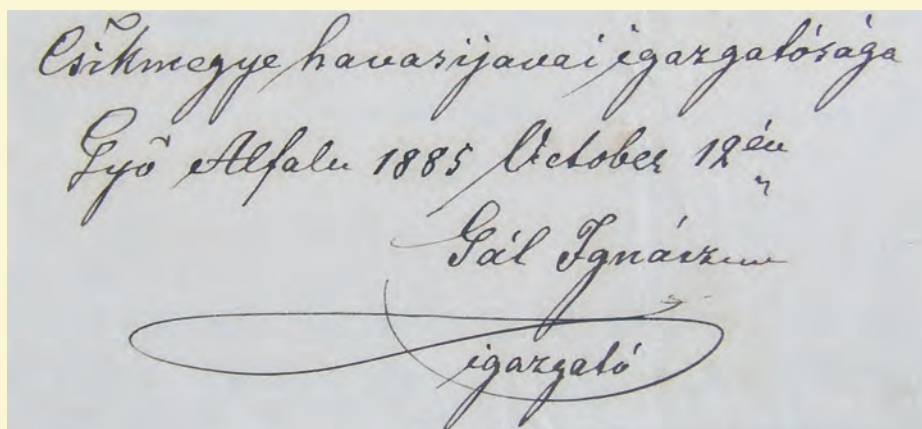 Csikmegye havasijavai igazgatósága
Győ Alfalu 1885 October 12 én
Gál Ignász
igazgató